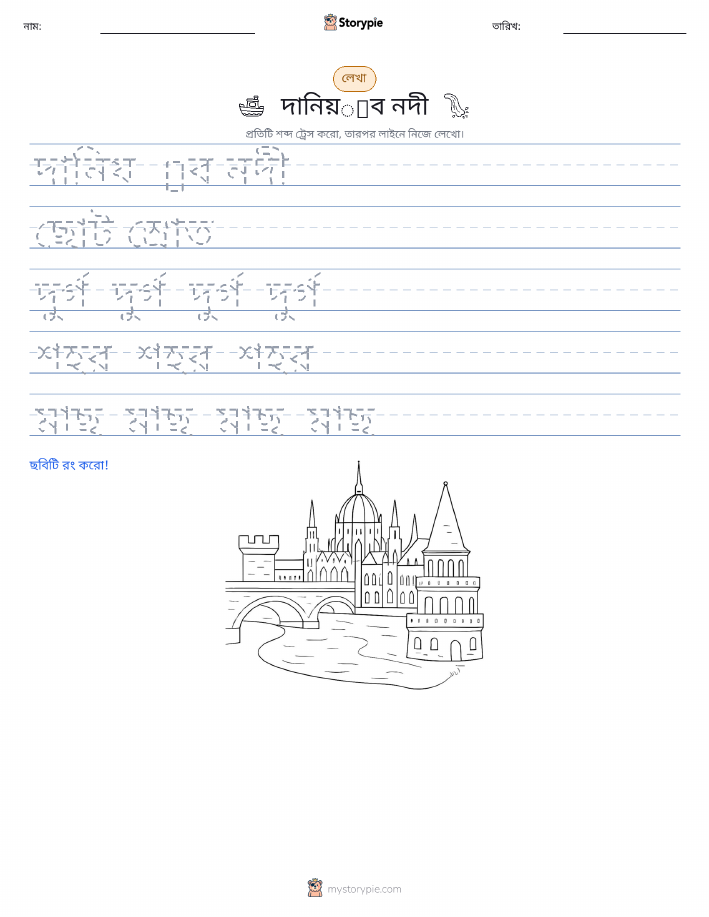 নাম:
Storypie
তারিখ:
লেখা
নদী
প্রতিটি শব্দ ট্রেস করো, তারপর লাইনে নিজে লেখো।
নদী
ছোট স্রোত
দুর্গ দুর্গ দুর্গ দুর্গ
শহর শহর শহর
মাছ মাছ মাছ মাছ
ছবিটি রং করো!
mystorypie.com